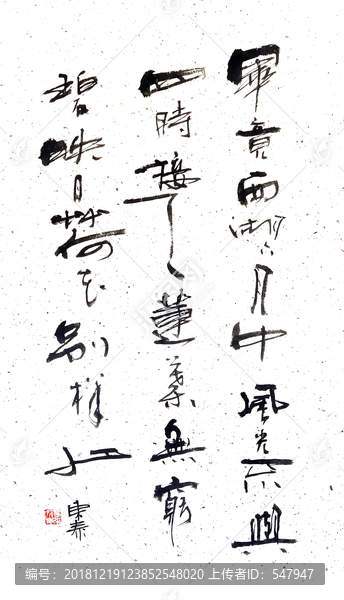 畢竟西湖六月中風光不與
四時接天蓮葉無窮
碧映日荷花別樣紅
编号：20181219123852548020 ID：547947